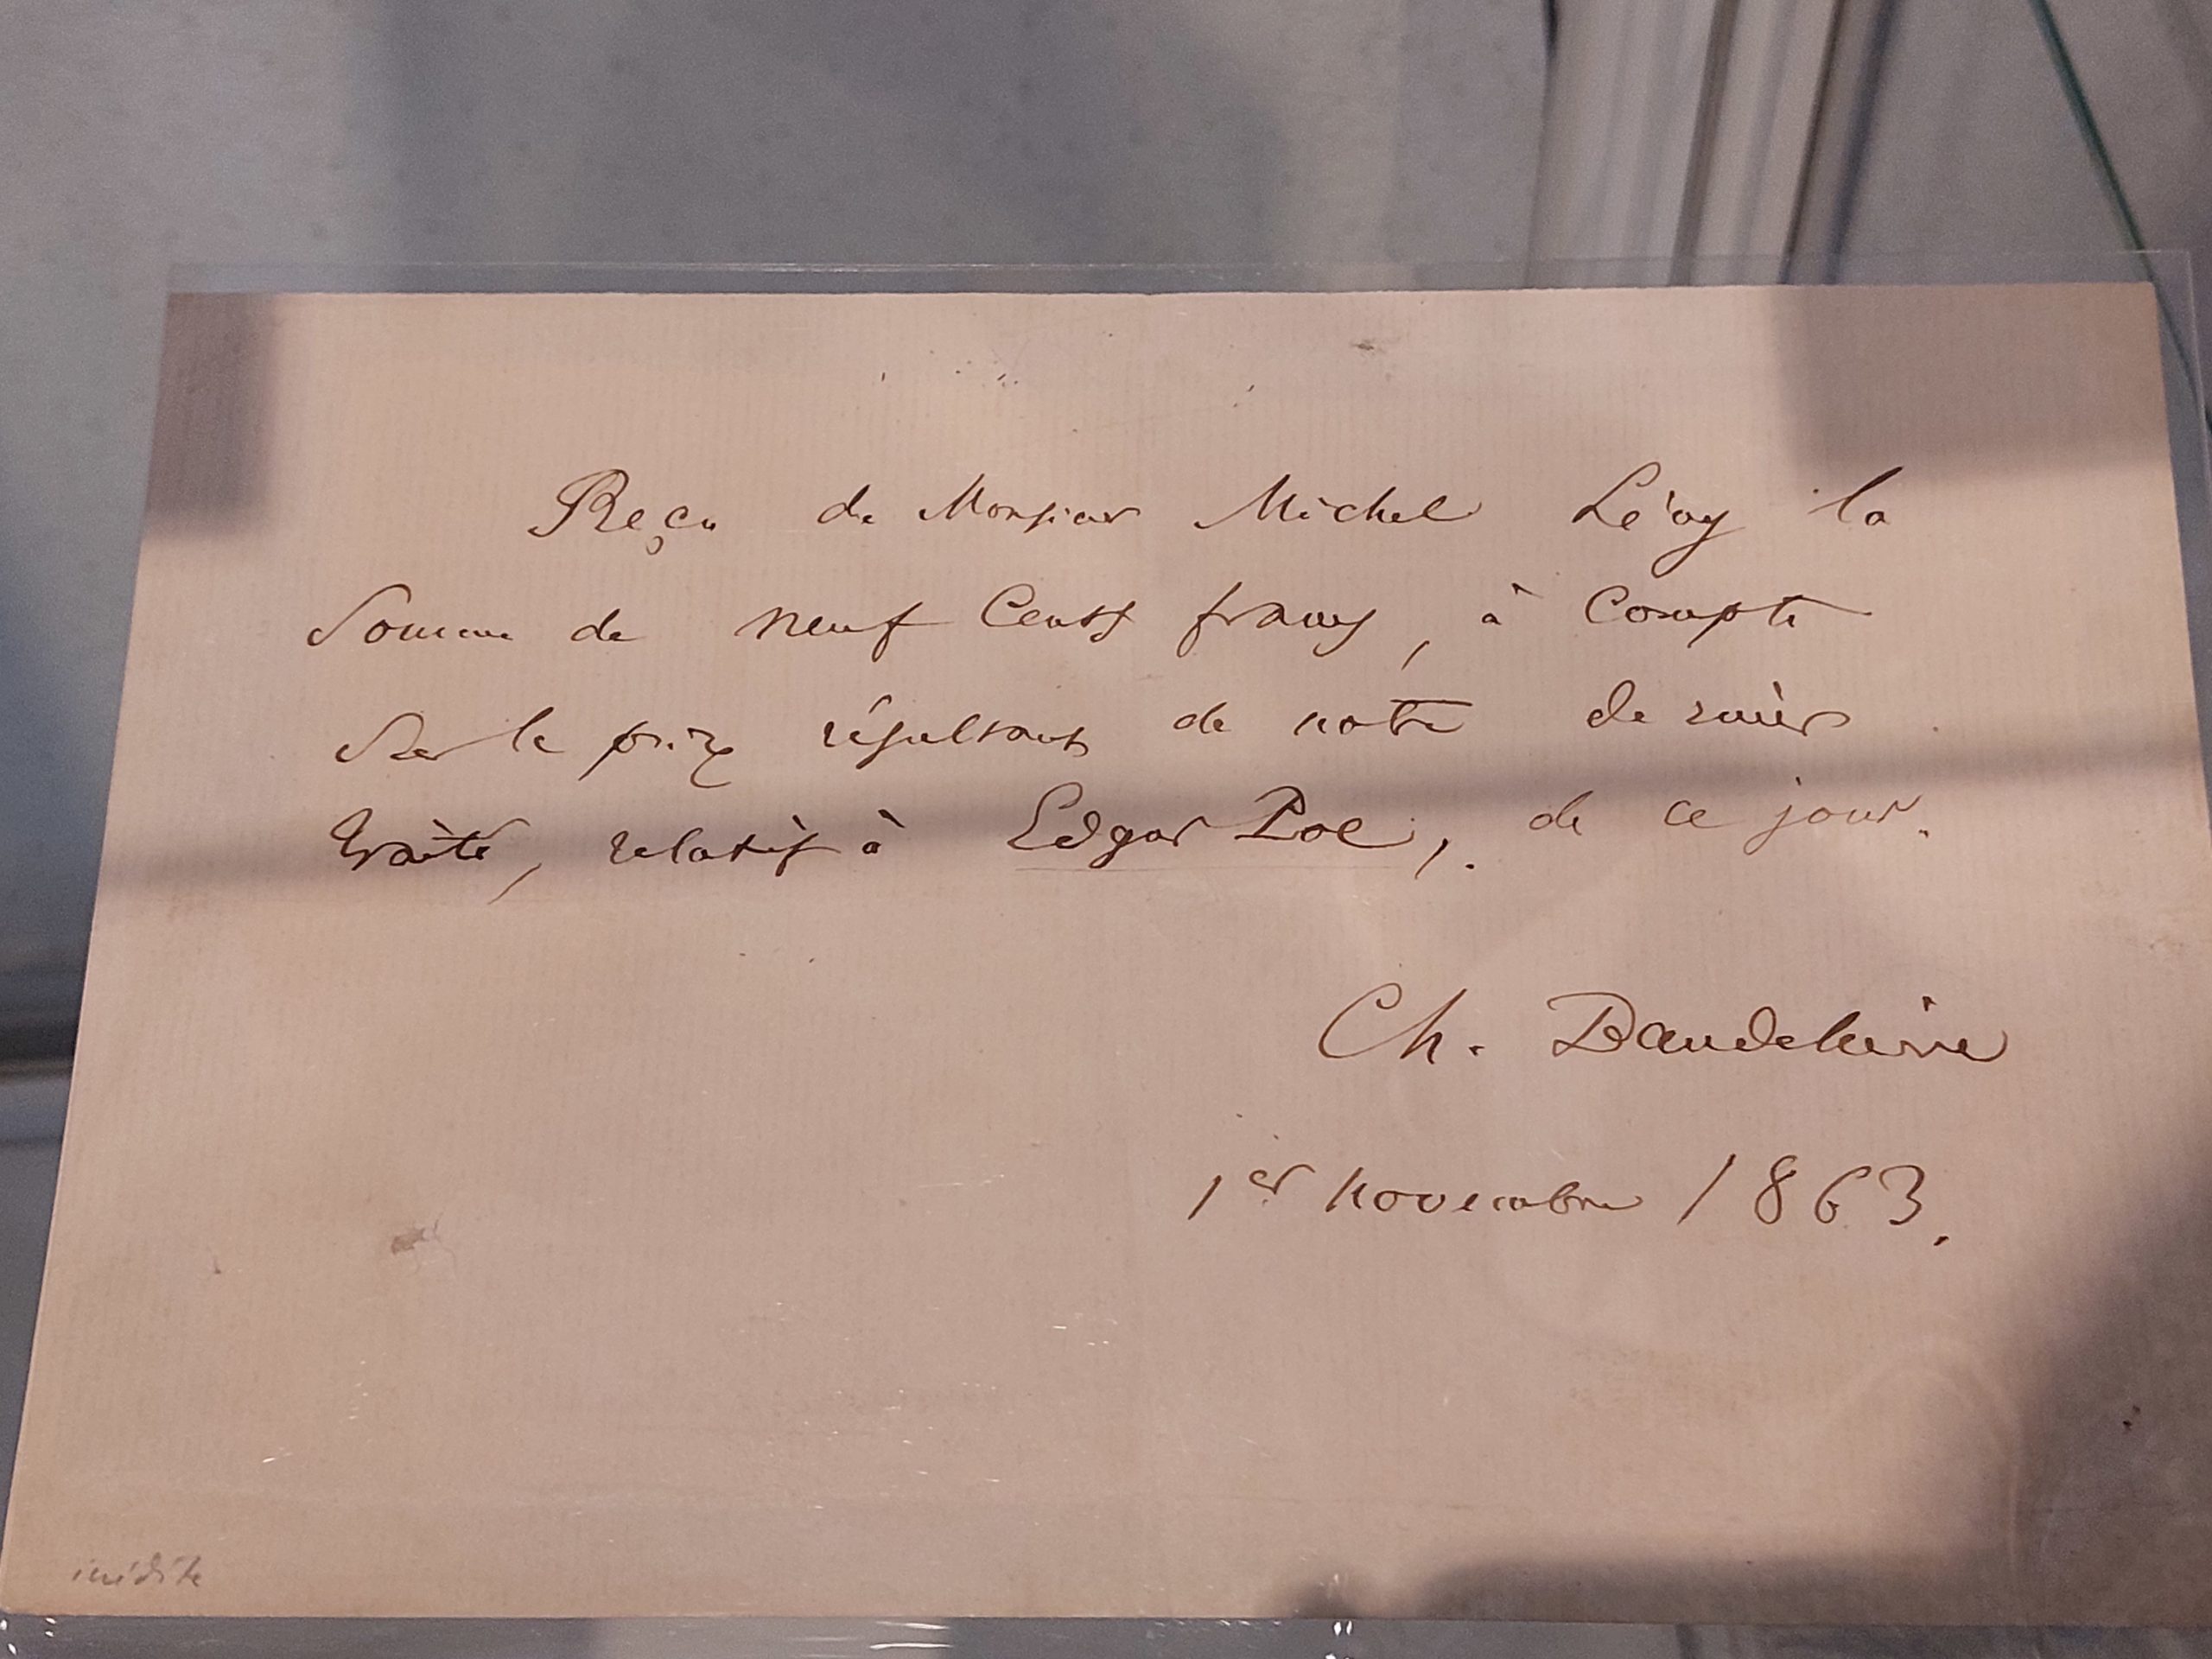 Reçu de Monsieur Michel Lévy la
Somme de neuf Cents francs, à Compte
Sur le prix résultant de notre dernier
traité, relatif à Edgar Poe, . de ce jour.
Ch. Baudelaire
1er novembre 1863.
inédite